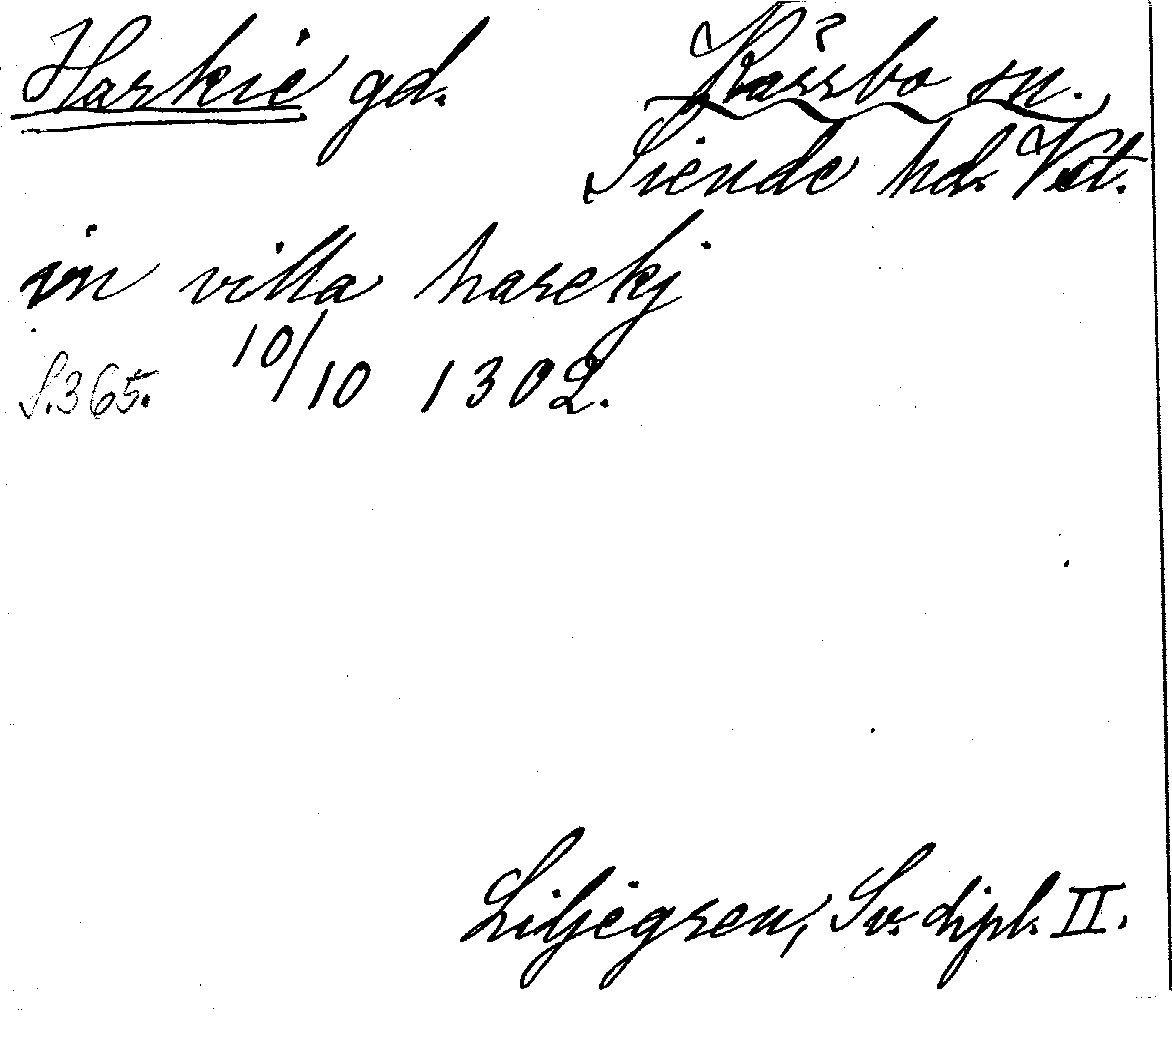 Harkie gd. Kärrbo sn.
Siende hd. Vst.
in villa harekj
S.365. 10/10 1302.
Liljegren, Sv. dipl. II.